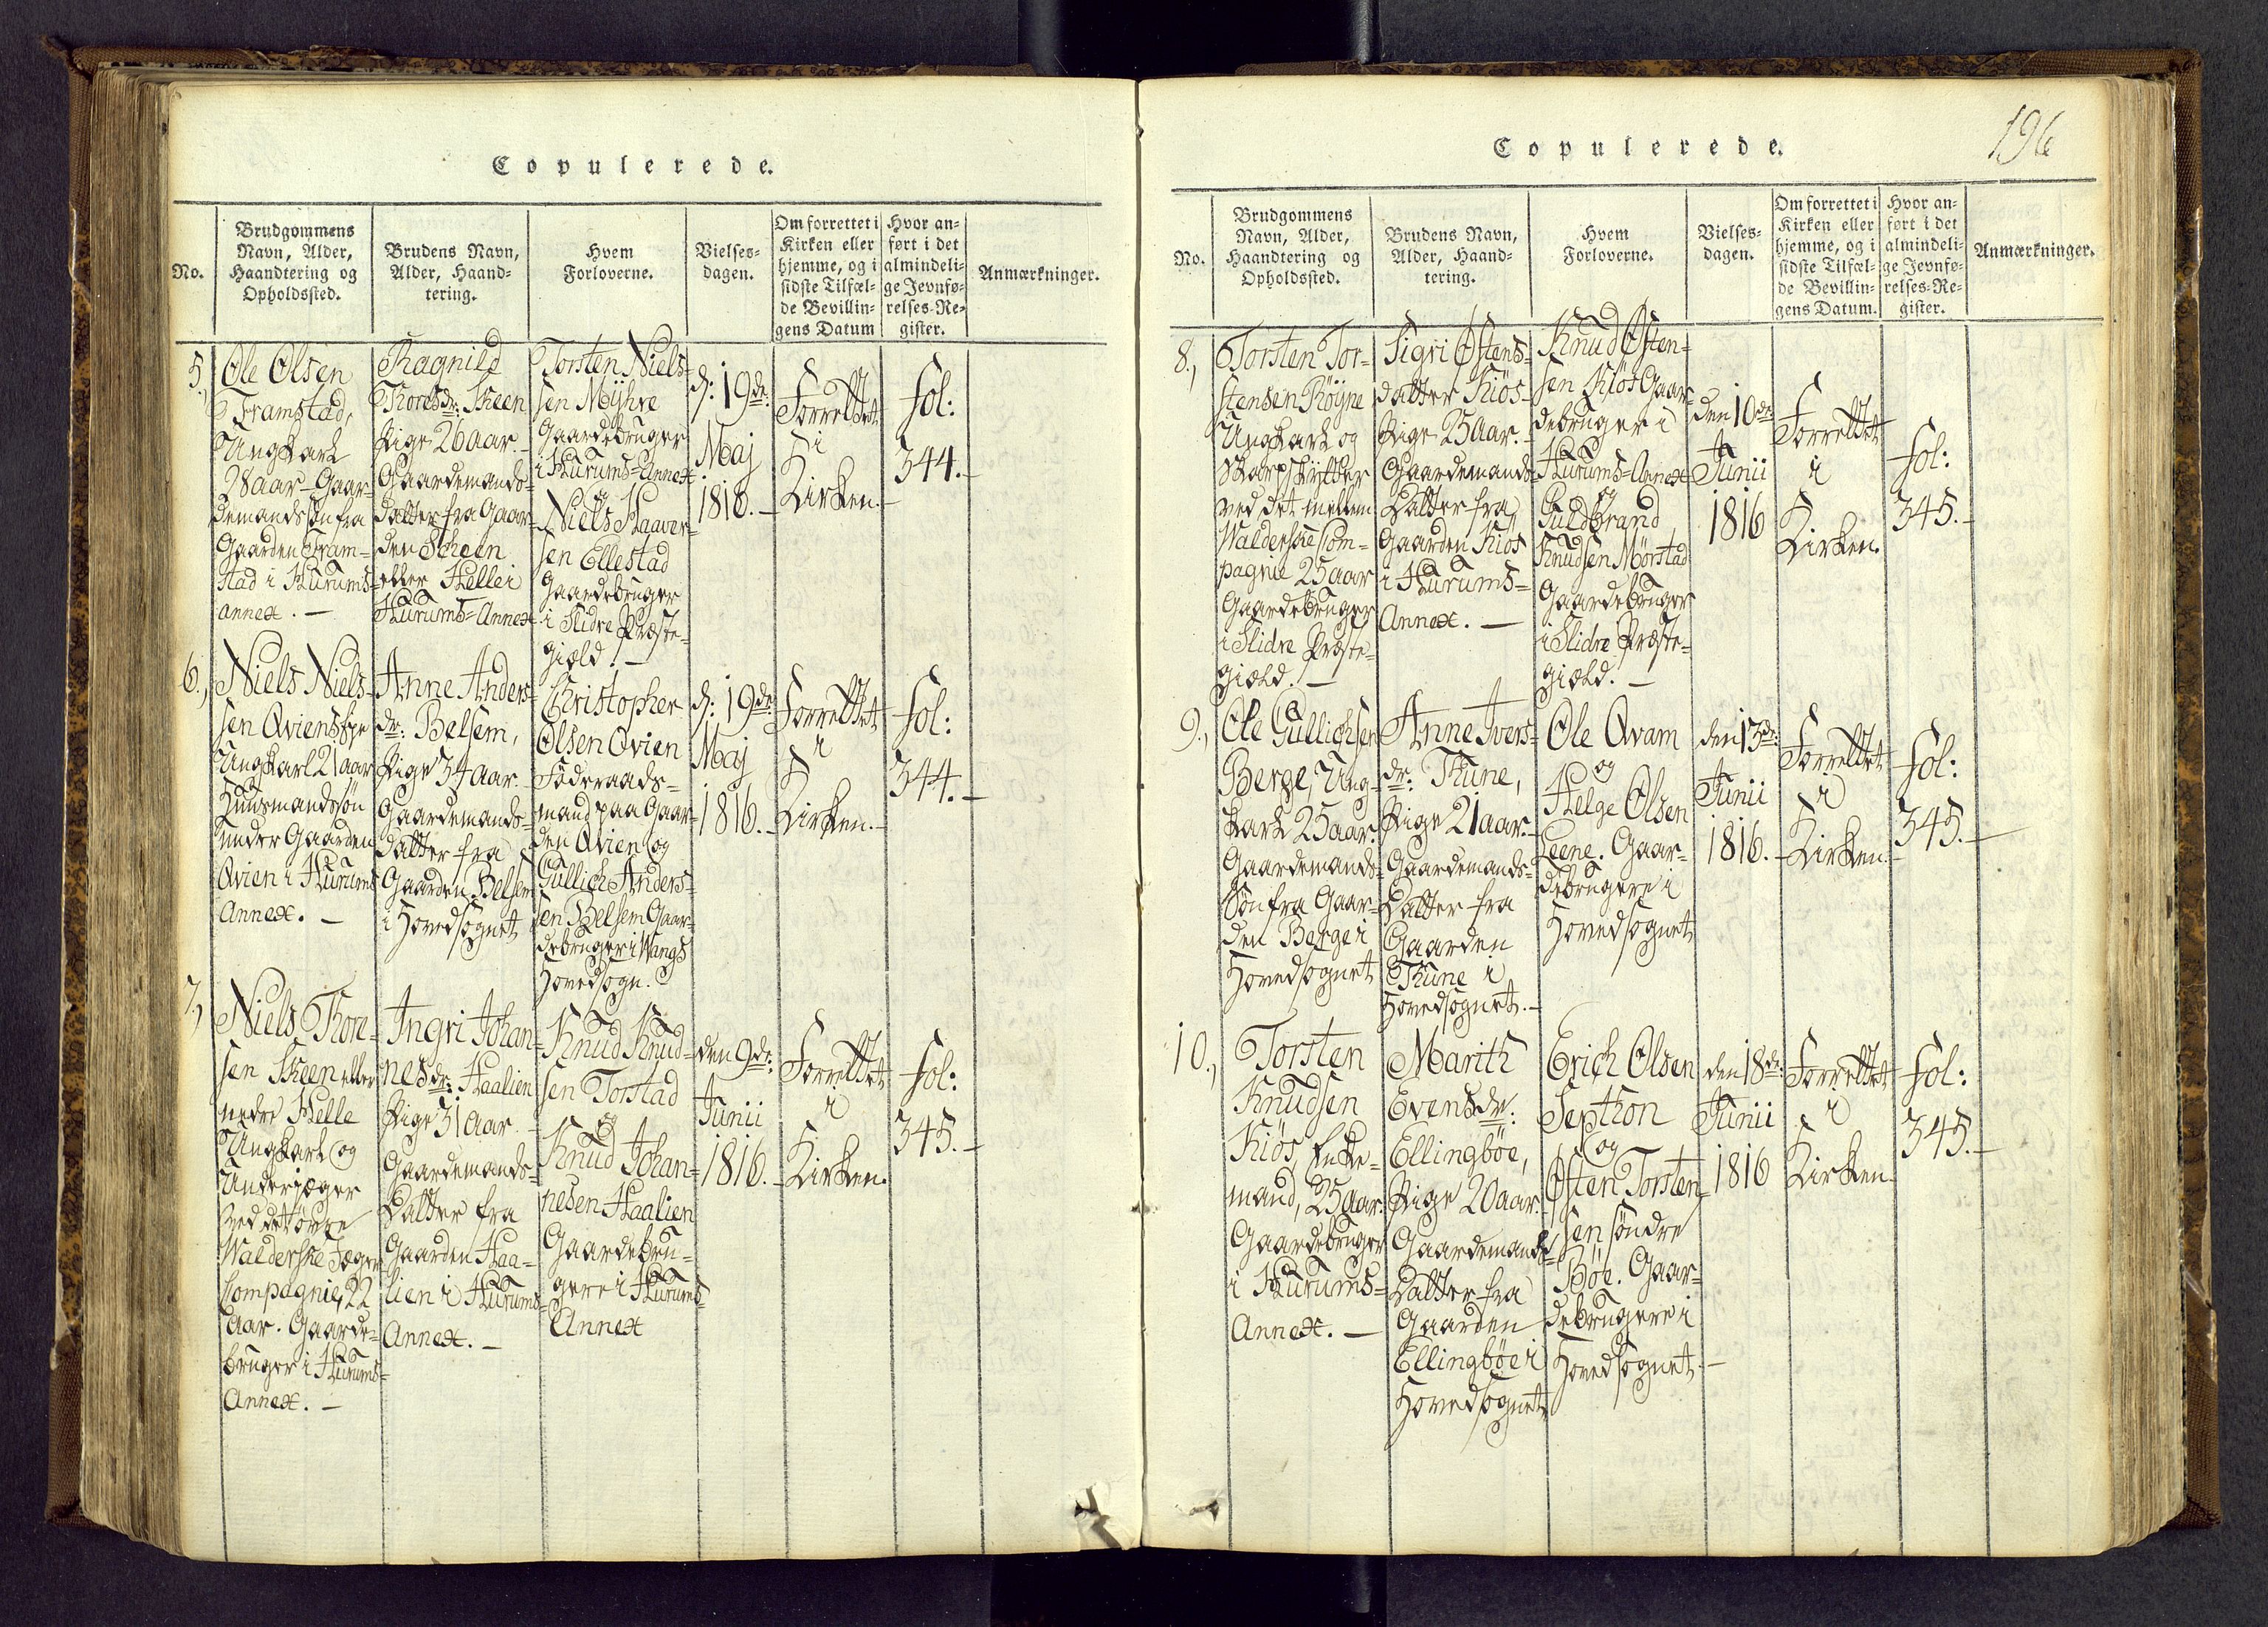 Copulerede.
No.
Brudgommens
Navn, Alder,
Haandtering og
Opholdssted.
Brudens Navn,
Alder, Haand-
tering.
Hvem
Forloverne.
Vielses-
dagen.
Om forrettet i
Kirken eller
hjemme, og i
sidste Tilfæl-
de Bevillin-
gens Datum
Hvor an-
ført i det
almindeli-
ge Jevnfø-
relses-Re-
gister.
Anmærkninger.
5.,
Ole Olsen
Framstad,
Ungkarl
28 aar Gaar-
demandssøn fra
Gaarden Fram-
stad i Hurums-
annex. —
Ragnild
Thoresdr: Skeen
Pige 26 aar. -
Gaardemands-
datter fra Gaar-
den Scheen
eller Helle i
Hurums-Annex
Torsten Niels-
sen Myhre
Gaardebruger
i Hurums-Annex
og
Niels Haaver-
sen Ellestad
Gaardebruger
i Slidre Præste-
giæld. —
d: 19de
Maj
1816. -
Forrettet
i
Kirken. -
fol:
344. -
6.,
Niels Niels-
sen Qviens
Ungkarl 21 aar
Huusmandssøn
under Gaarden
Qvien i Hurums
Annex. —
Anne Anders-
dr: Belsem,
Pige 34 aar. -
Gaardemands-
datter fra
Gaarden Belsem
i Hovedsognet
Christopher
Olsen Qvien
Föderaads-
mand paa Gaar-
den Qvien og
Gullich Anders-
sen Belsem Gaar-
debruger i Wangs
Hovedsogn.
d: 19de
Maj
1816. -
Forrettet
i
Kirken. -
fol:
344. -
7.,
Niels Thore-
sen Skeen eller
nedre Helle
Ungkarl og
Underjæger
ved det
Walderske Jæger
Compagnie, 22
Aar. Gaarde-
bruger i Hurums-
Annex. —
Ingri Johan-
nesdr: Haalien
Pige 31 Aar -
Gaardemands-
Datter fra
Gaarden Haa-
lien i Hurums-
Annex. —
Knud Knud-
sen Torstad
og
Knud Johan-
nesen Haalien
Gaardebru-
gere i Hurums-
Annex
den 9de:
Junii
1816. -
Forrettet
i
Kirken.
fol:
345. -
Copulerede.
196
No.
Brudgommens
Navn, Alder,
Haandtering og
Opholdssted.
Brudens Navn,
Alder, Haand-
tering.
Hvem
Forloverne.
Vielses-
dagen.
Om forrettet i
Kirken eller
hjemme, og i
sidste Tilfæl-
de Bevillin-
gens Datum.
Hvor an-
ført i det
almindeli-
ge Jevnfø-
relses-Re-
gister.
Anmærkninger.
8.,
Torsten Tor-
stensen Röyne
Ungkarl og
Skarpskytter
ved det mellem
Walderske Com-
pagnie 25 aar
Gaardebruger
i Slidre Præste-
giæld. —
Sigri Østens-
datter Kiös-
Pige 25 Aar. -
Gaardemands-
Datter fra
Gaarden Kiös
i Hurums-
Annex. —
Knud Østen-
sen Kiös Gaar-
debruger i
Hurums-Annex
og
Guldbrand
Knudsen Mörstad
Gaardebruger
i Slidre Præste-
giæld. —
den 10de
Junii
1816
Forrettet
i
Kirken.
fol:
345. -
9.,
Ole Gullichsen
Berge, Ung-
karl 25 aar.
Gaardemands-
Søn fra Gaar-
den Berge i
Hovedsognet
Anne Ivers-
dr: Thune,
Pige 21 aar. -
Gaardemands-
Datter fra
Gaarden
Thune i
Hovedsognet. -
Ole Qvam
og
Helge Olsen
Leene. Gaar-
debrugere i
Hovedsognet
den 13de:
Junii
1816. -
Forrettet
i
Kirken. -
fol:
345. —
10.,
Torsten
Knudsen
Kiös, Enke-
mand, 25 aar.
Gaardebruger
i Hurums-
Annex. —
Marith
Evensdr:
Ellingböe,
Pige 20 aar. -
Gaardemands-
Datter fra
Gaarden
Ellingböe i
Hovedsognet
Erich Olsen
Septhon
og
Østen Torsten-
sen söndre
Böe. Gaar-
debrugere i
Hovedsognet. —
den 18de:
Junii
1816
Forrettet
i
Kirken
fol:
345. —